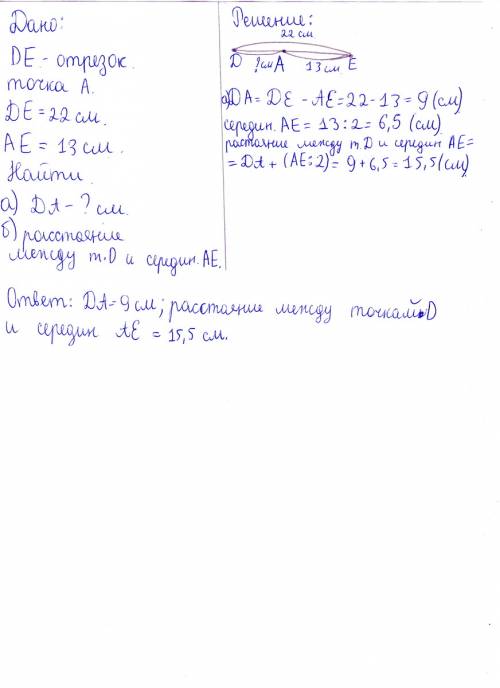 Дано:
DE - отрезок.
точка А.
DE = 22 см.
AE = 13 см.
Найти
а) DA - ? см.
б) расстояние
между т.D и середин. AE.
Решение:
22 см
D ?см A 13 см E
а) DA = DE - AE = 22 - 13 = 9 (см)
середин. AE = 13 : 2 = 6,5 (см)
растояние между т.D и середин AE =
= DA + (AE : 2) = 9 + 6,5 = 15,5 (см)
Ответ: DA = 9 см; расстояние между точкой D
и середин AE = 15,5 см.